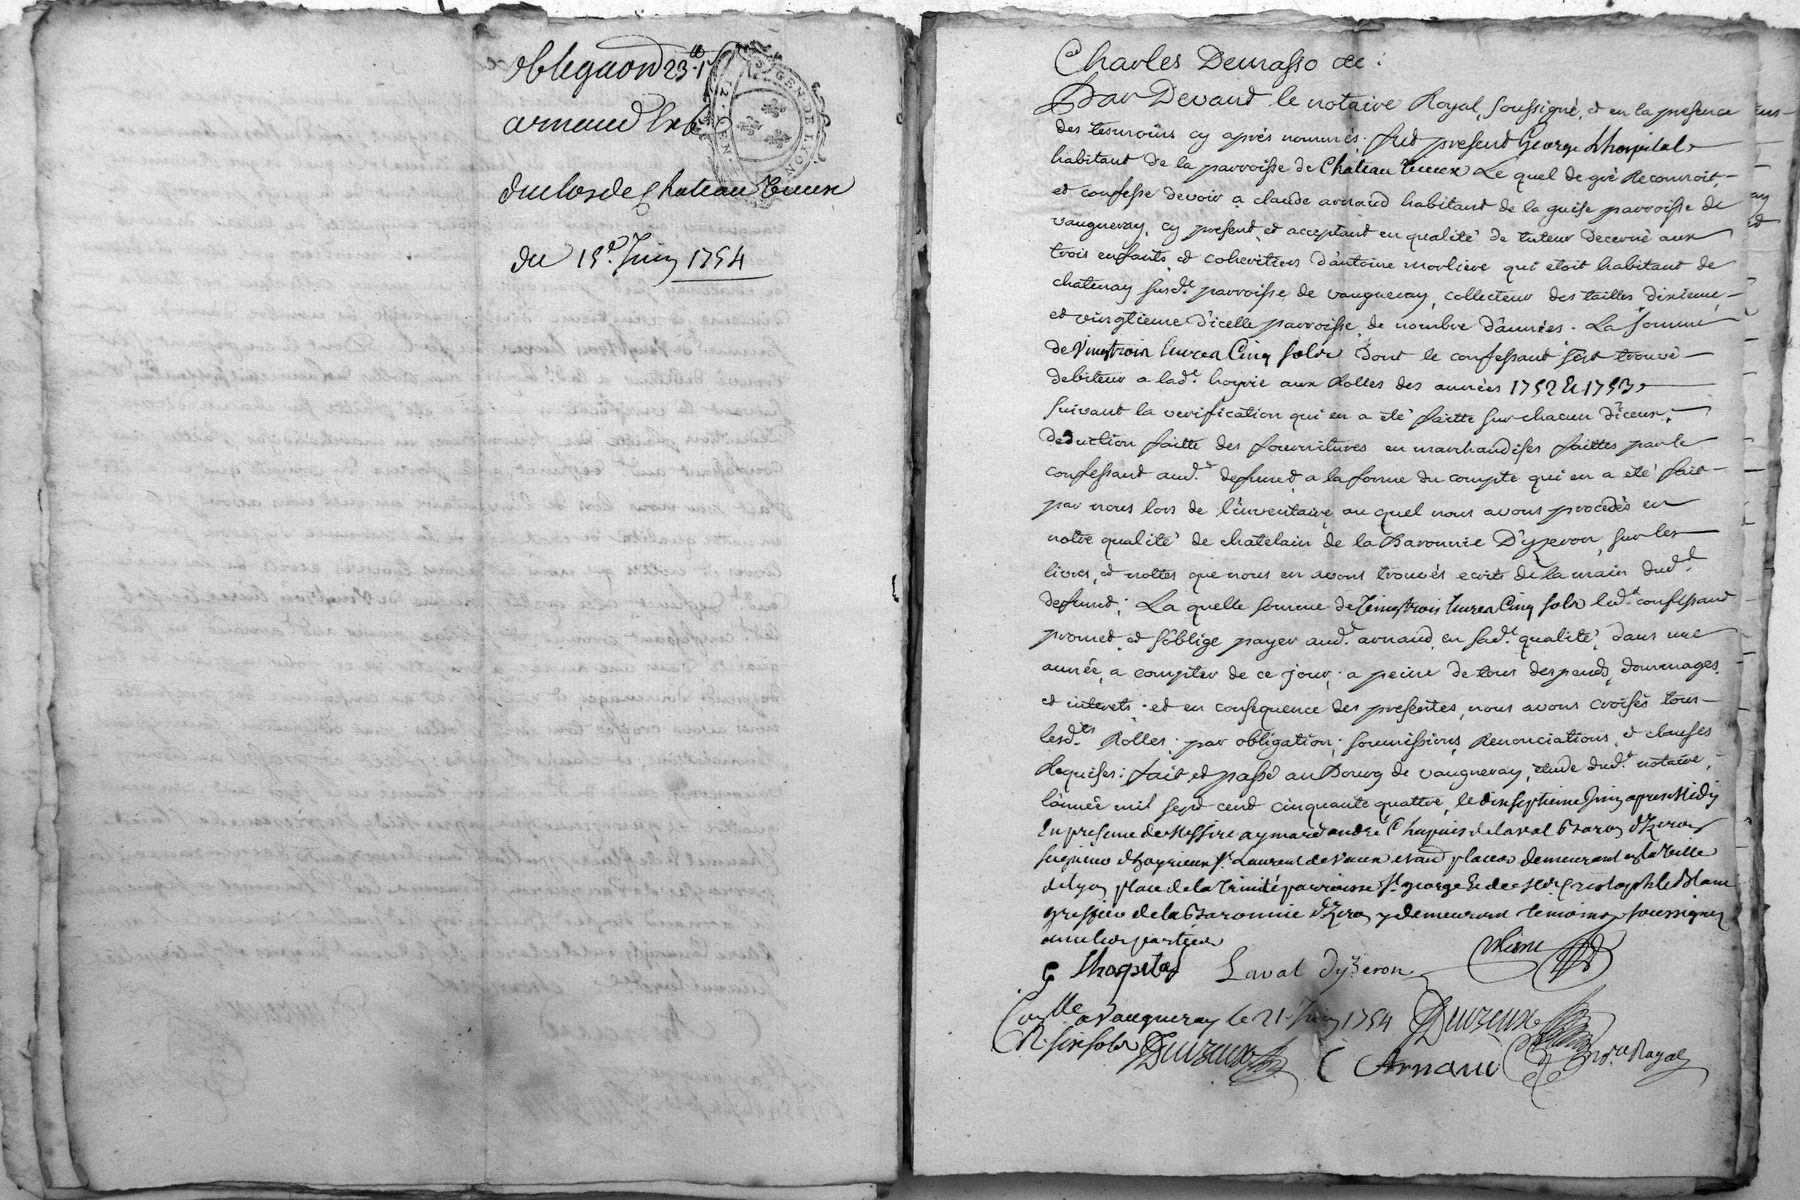 obligaõn 23tt 1s
arnaud
du clos de Chateau Vieux
du 15e. Juin 1754
GEN. DE LYON
2.
Charles Demasso &c :
Par Devant le notaire Royal, soussigné, et en la presence
des temoins cy aprés nommés. fut present George Lhopital
habitant de la parroisse de Chateau Vieux Le quel de gré Reconnoit,
et confesse devoir a claude arnaud habitant de la guise parroisse de
vaugneray, cy present et acceptant en qualité de tuteur decerné aux
trois enfants et coheritiers d'antoine morliere qui etoit habitant de
chatenay susd.e parroisse de vaugneray, collecteur des tailles dixieme,
et vingtieme d'icelle parroisse, de nombre d'années. La somme
de Vingtrois Livres Cinq sols dont le confessant s'est trouvé
debiteur a lad.e hoyrie aux Rolles des années 1752 & 1753
suivant la verification qui en a eté faitte sur chacun d'iceux,
deduction faitte des fournitures en marchandises faittes par le
confessant aud.t defunt, a la forme du compte qui en a eté fait
par nous lors de l'inventaire, au quel nous avons procedés en
notre qualité de chatelain de la Baronnie D'yzeron, sur les
livres, et nottes que nous en avons trouvés ecrits de la main dud.t
defunt; La quelle somme de Vingtrois Livres Cinq sols led.t confessant
promet et s'oblige payer aud.t arnaud, en sad.e qualité, dans une
année, a compter de ce jour, a peine de tous despends, dommages
et interets. et en consequence des presentes, nous avons croisés tous
lesd.ts Rolles. par obligation, soumissions, Renonciations, et clauses
Requises: fait et passé au Bourg de vaugneray, etude dud.t notaire,
l'année mil sept cent cinquante quattre, le dixseptieme Juin apres Midy
En presence de Messire aymard andré Chapuis de laval Baron d'Izeron
seigneur d' St Laurent de Vaux et aud places demeurant en la Ville
de Lyon place de la Trinité parroisse St. george & de Christophle Blanc
greffier de la Baronnie d'Izeron y demeurant temoins soussignez
avec les parties
G Lhopital Laval Dyzeron Blanc
Con.lle a Vaugneray le 21 Juin 1754
R. six sols
C Arnaud no.re Royal